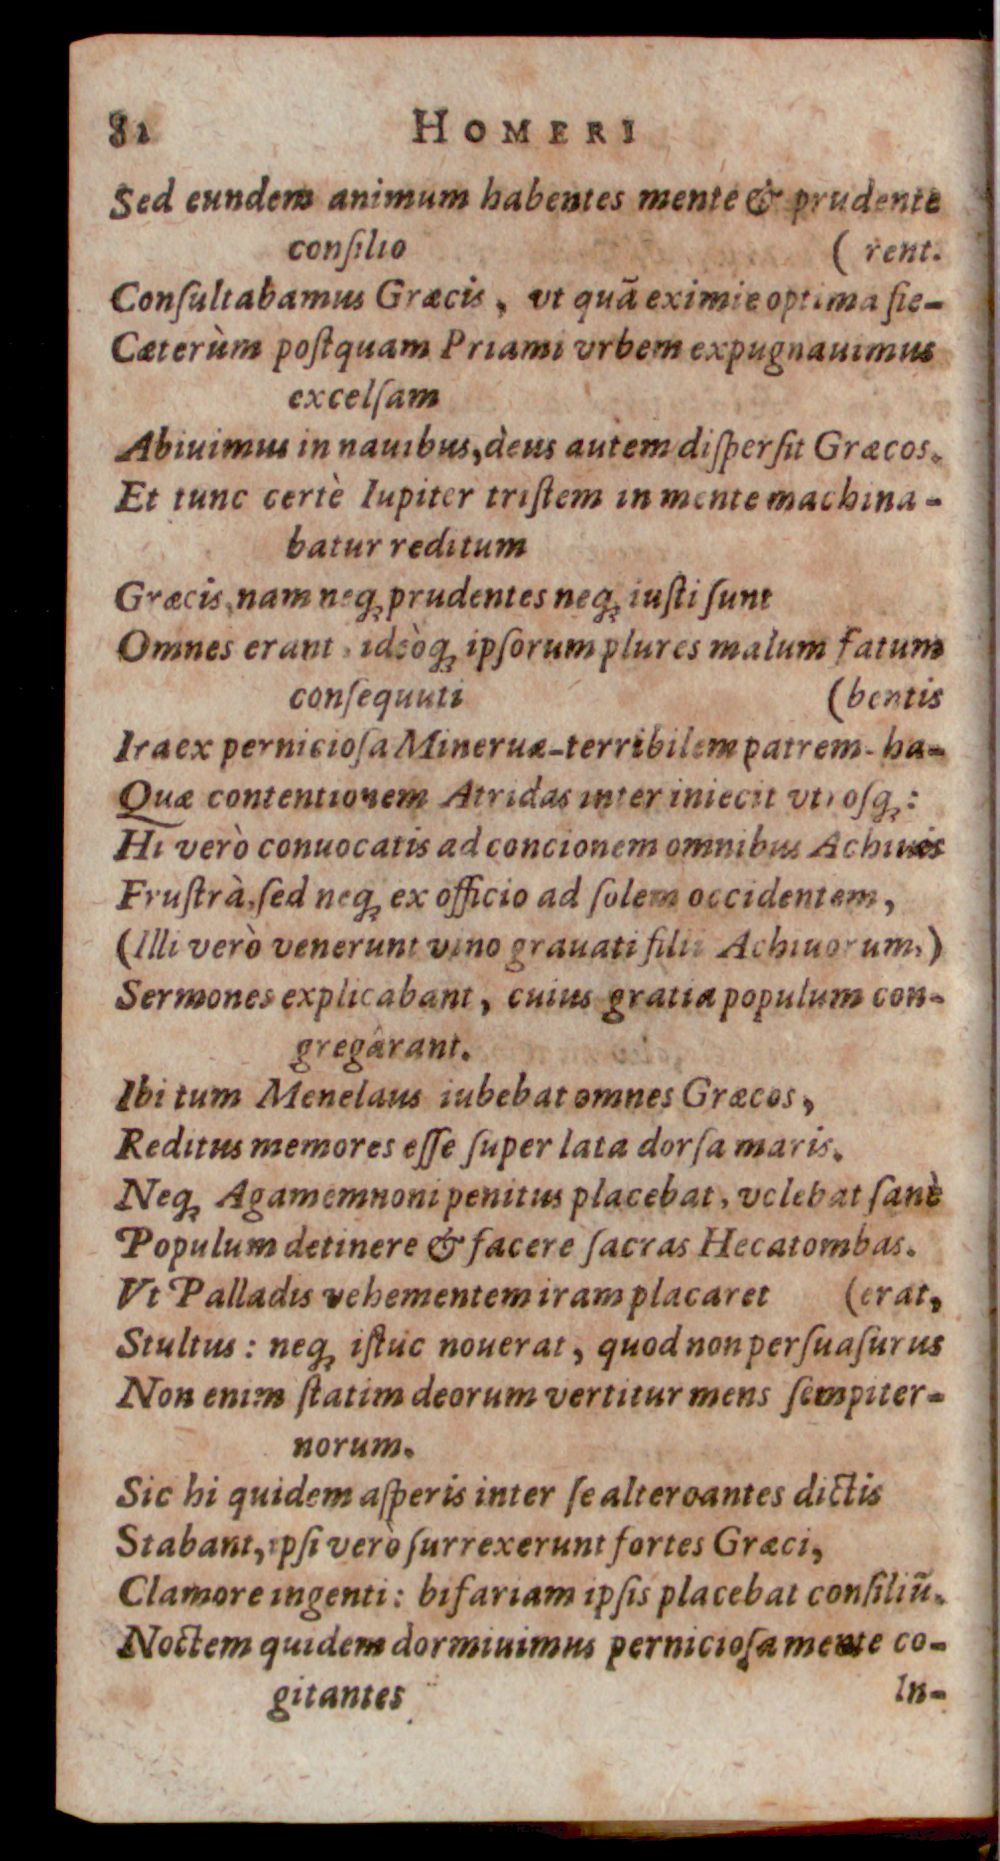 82 HOMERI
Sed eundem animum habentes mente & prudente
conſilio ( rent.
Conſultabamus Græcis, vt quã eximie optima fie-
Cæterùm poſtquam Priami vrbem expugnauimus
excelſam
Abiuimus in nauibus, deus autem diſperſit Græcos.
Et tunc certè Iupiter triſtem in mente machina-
batur reditum
Græcis, nam neq; prudentes neq; iuſti ſunt
Omnes erant, ideòq; ipſorum plures malum fatum
conſequuti (bentis
Ira ex pernicioſa Mineruæ-terribilem patrem-ha-
Quæ contentionem Atridas inter iniecit vtroſq;:
Hi verò conuocatis ad concionem omnibus Achiuis
Fruſtrà, ſed neq; ex officio ad ſolem occidentem,
(Illi verò venerunt vino grauati filii Achiuorum,)
Sermones explicabant, cuius gratia populum con-
gregârant.
Ibi tum Menelaus iubebat omnes Græcos,
Reditus memores eſſe ſuper lata dorſa maris.
Neq; Agamemnoni penitus placebat, volebat ſanè
Populum detinere & facere ſacras Hecatombas.
Vt Palladis vehementem iram placaret (erat,
Stultus: neq; iſtuc nouerat, quod non perſuaſurus
Non enim ſtatim deorum vertitur mens ſempiter-
norum.
Sic hi quidem aſperis inter ſe altercantes dictis
Stabant, ipſi verò ſurrexerunt fortes Græci,
Clamore ingenti: bifariam ipſis placebat conſiliũ.
Noctem quidem dormiuimus pernicioſa mente co-
gitantes In-